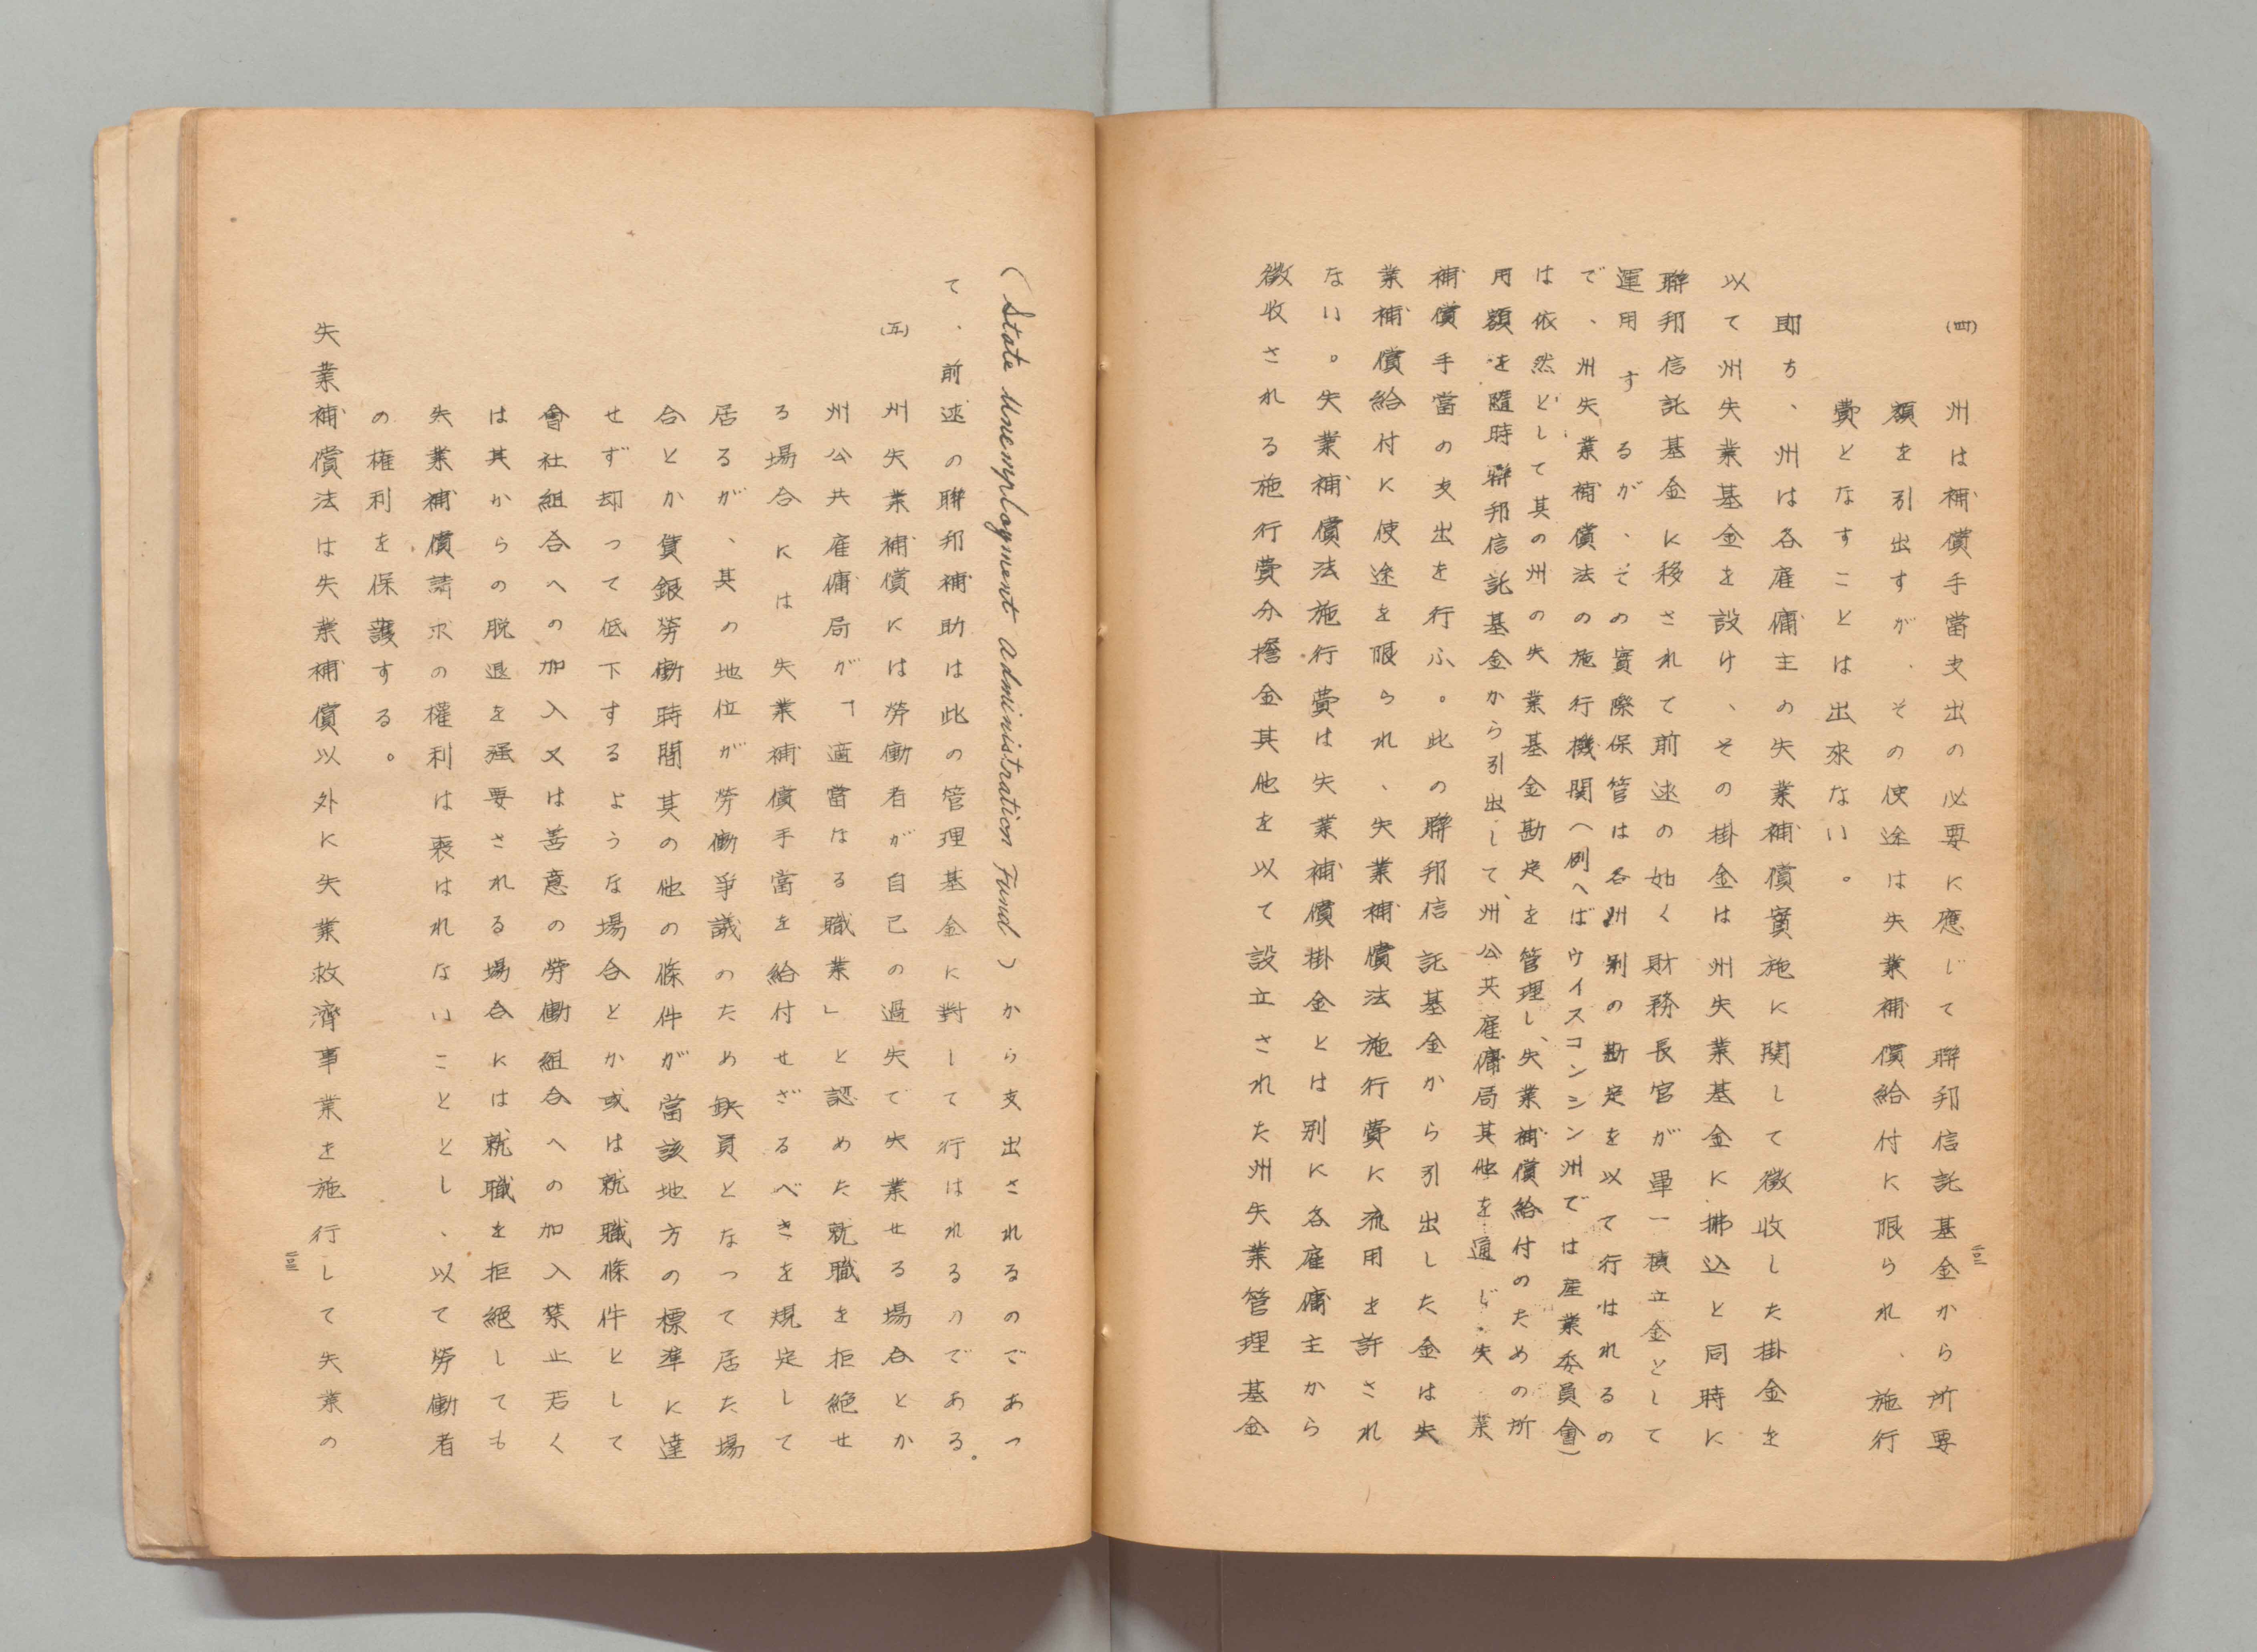 (四)　州は補償手當支出の必要に應じて聯邦信託基金から所要
額を引出すが、その使途は失業補償給付に限られ、施行
費となすことは出來ない。
即ち、州は各雇傭主の失業補償實施に関して徴收した掛金を
以て州失業基金を設け、その掛金は州失業基金に拂込と同時に
聯邦信託基金に移されて前述の如く財務長官が單一積立金として
運用するが、その實際保管は各州別の勘定を以て行はれるの
で、州失業補償法の施行機関(例へばウイスコンシン州では産業委員會)
は依然として其の州の失業基金勘定を管理し、失業補償給付のための所
用額を隨時聯邦信託基金から引出して、州公共雇傭局其他を通じ失業
補償手當の支出を行ふ。此の聯邦信託基金から引出した金は失
業補償給付に使途を限られ、失業補償法施行費に流用を許され
ない。失業補償法施行費は失業補償掛金とは別に各雇傭主から
徴收される施行費分擔金其他を以て設立された州失業管理基金
(State Unemployment Administration Fund)から支出されるのであつ
て、前述の聯邦補助は此の管理基金に對して行はれるのである。
(五)　州失業補償には勞働者が自己の過失で失業せる場合とか
州公共雇傭局が「適當なる職業」と認めた就職を拒絶せ
る場合には失業補償手當を給付せざるべきを規定して
居るが、其の地位が勞働爭議のため缺員となつて居た場
合とか賃銀勞働時間其の他の條件が當該地方の標準に達
せず却つて低下するような場合とか或は就職條件として
會社組合への加入又は善意の勞働組合への加入禁止若く
は其からの脱退を强要される場合には就職を拒絶しても
失業補償請求の權利は喪はれないこととし、以て勞働者
の権利を保護する。
失業補償法は失業補償以外に失業救濟事業を施行して失業の